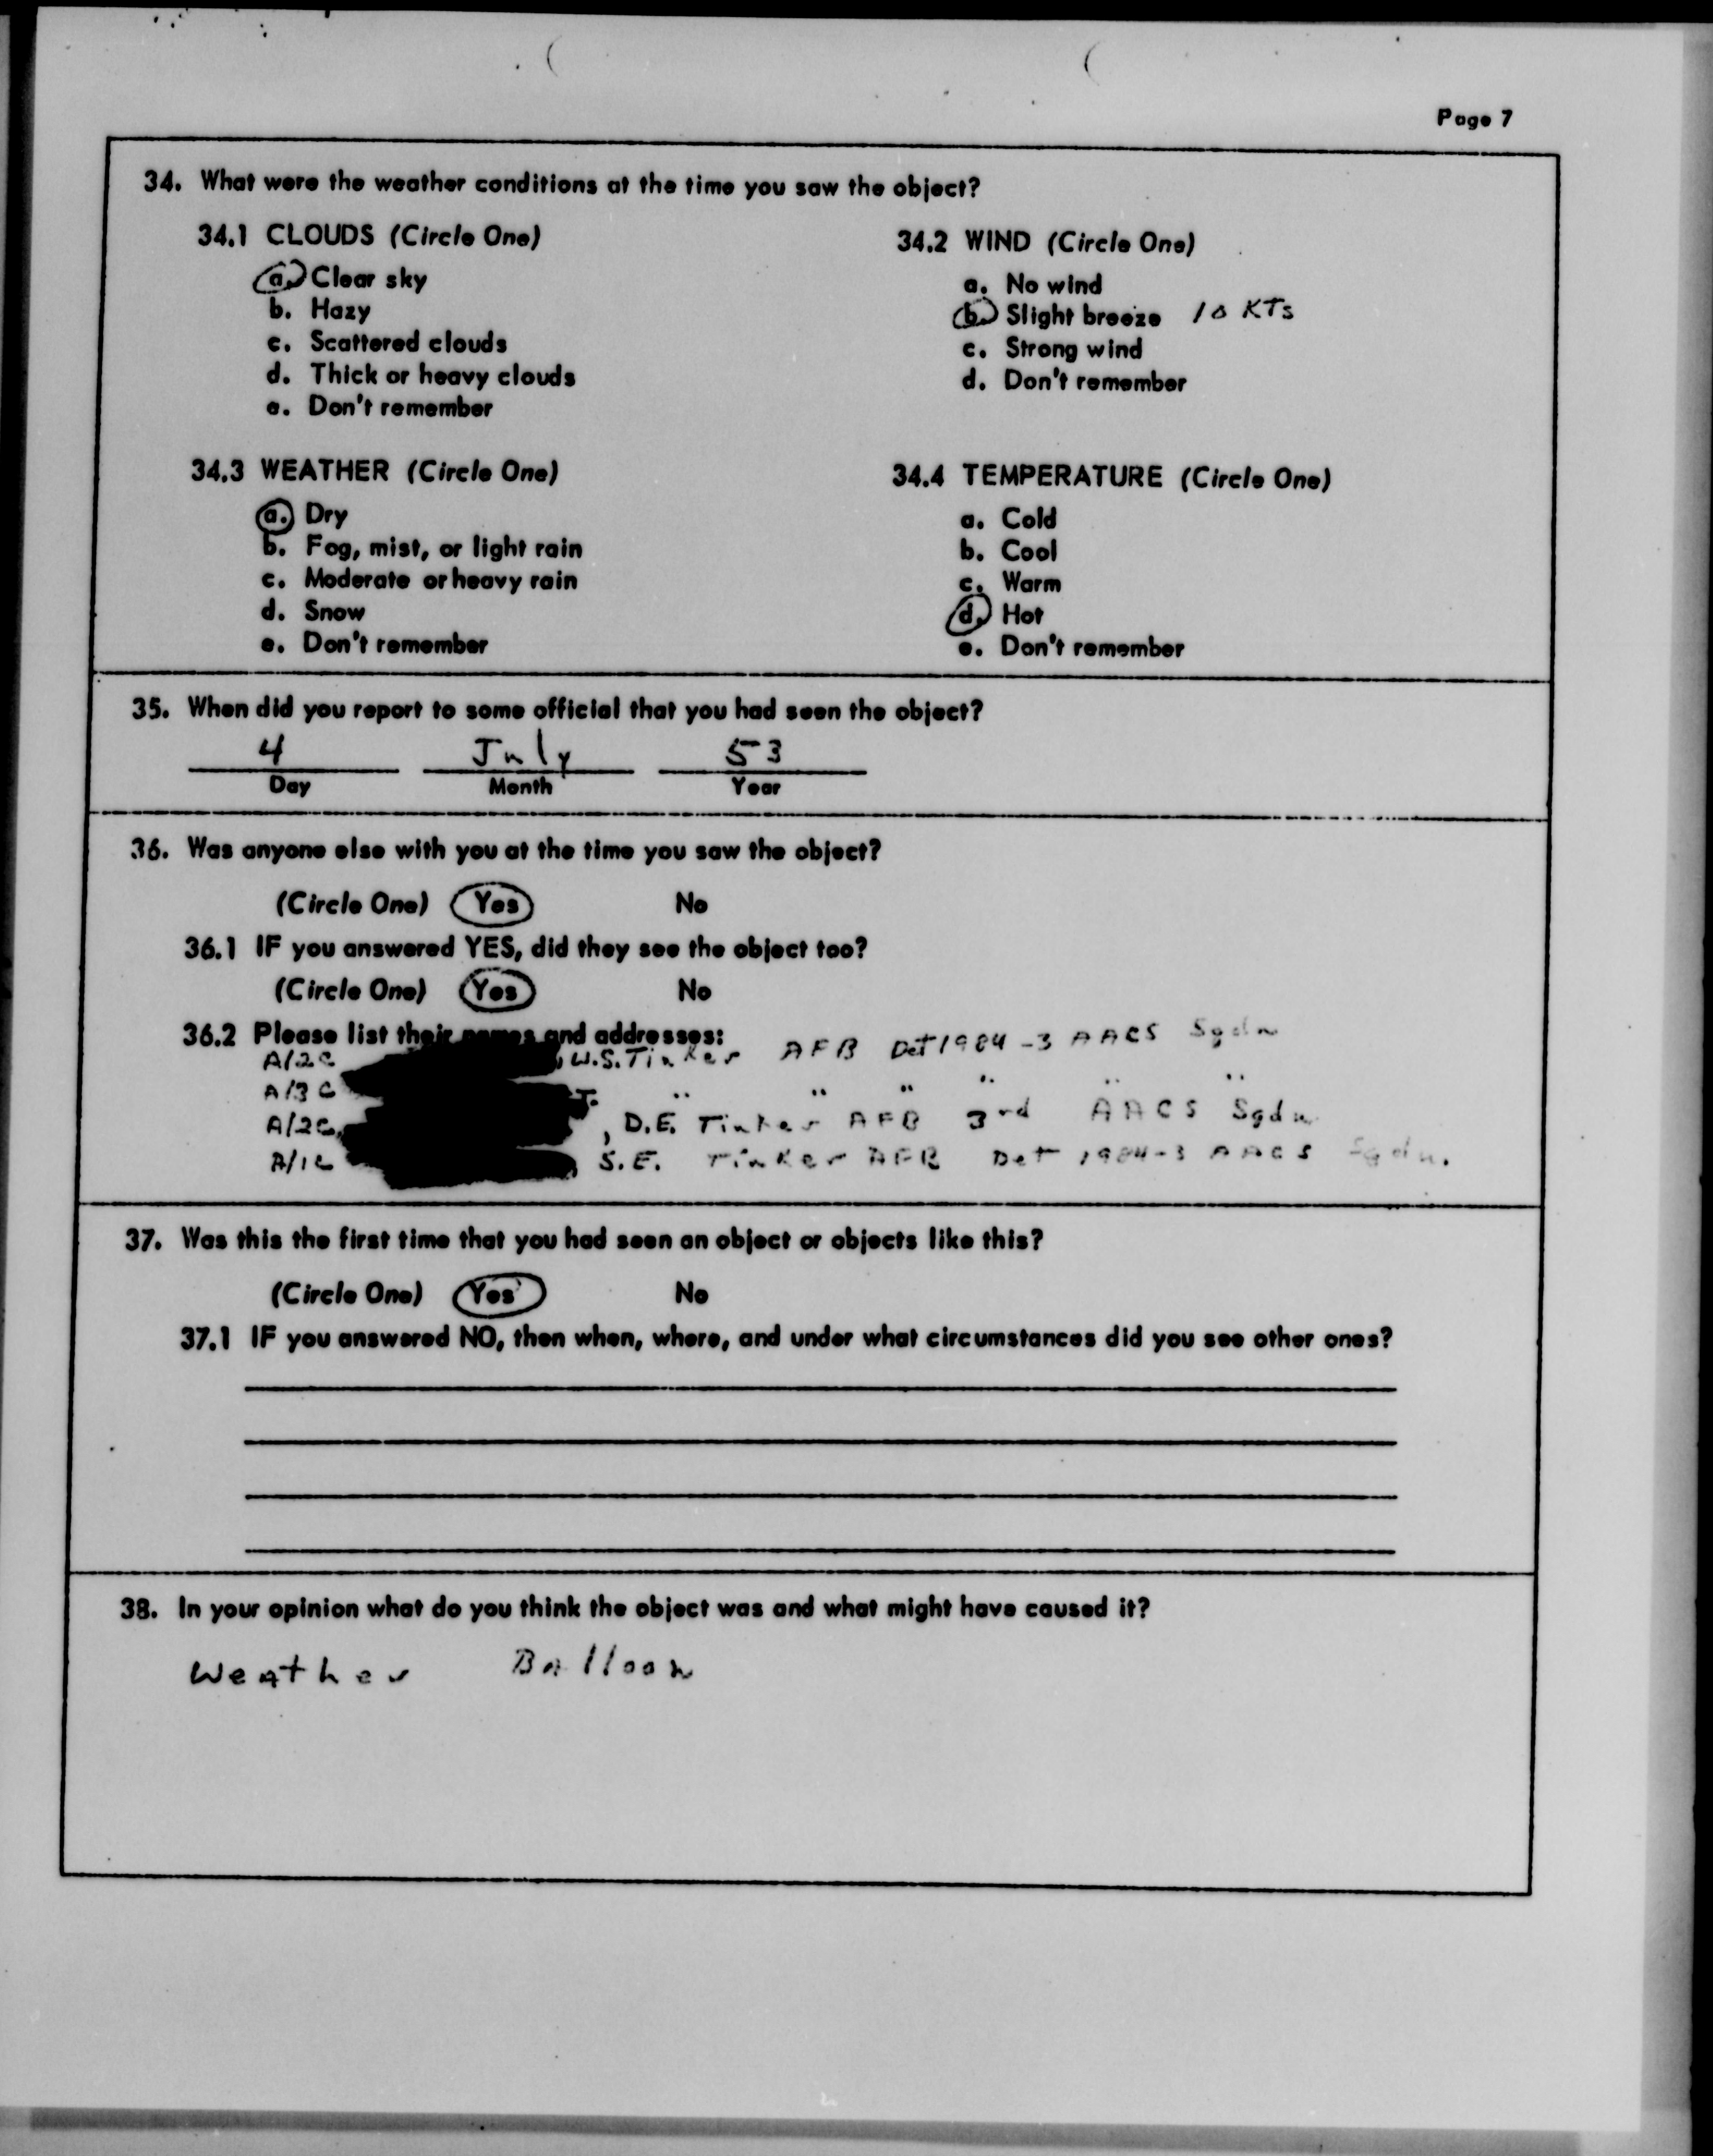 Page 7
34. What were the weather conditions at the time you saw the object?
34.1 CLOUDS (Circle One)
a. Clear sky
b. Hazy
c. Scattered clouds
d. Thick or heavy clouds
e. Don't remember
34.2 WIND (Circle One)
a. No wind
b. Slight breeze 10 KTs
c. Strong wind
d. Don't remember
34.3 WEATHER (Circle One)
a. Dry
b. Fog, mist, or light rain
c. Moderate or heavy rain
d. Snow
e. Don't remember
34.4 TEMPERATURE (Circle One)
a. Cold
b. Cool
c. Warm
d. Hot
e. Don't remember
35. When did you report to some official that you had seen the object?
4 July 53
Day Month Year
36. Was anyone else with you at the time you saw the object?
(Circle One) Yes No
36.1 IF you answered YES, did they see the object too?
(Circle One) Yes No
36.2 Please list their names and addresses:
A/2C , W.S. Tinker AFB Det 1984-3 AACS Sqdn
A/3C J. " " " " " "
A/2C, , D.E. Tinker AFB 3rd AACS Sqdn
A/1C , S.E. Tinker AFB Det 1984-3 AACS Sqdn.
37. Was this the first time that you had seen an object or objects like this?
(Circle One) Yes No
37.1 IF you answered NO, then when, where, and under what circumstances did you see other ones?
38. In your opinion what do you think the object was and what might have caused it?
Weather Balloon